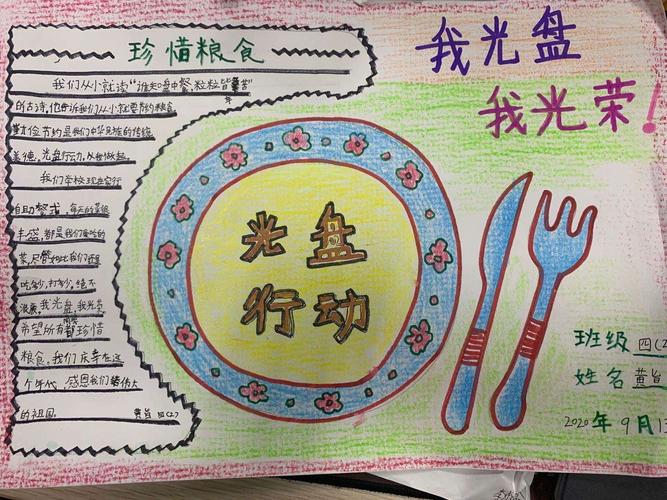 珍惜粮食
我们从小就读“谁知盘中餐，粒粒皆辛苦”
的古诗，他告诉我们从小就要节约粮食
勤俭节约是我们中华民族的传统
美德，光盘行动，从我做起
我们学校现在实行
自助餐式，每天的菜很
丰盛，都是我们爱吃的
菜，尽管如此我们还是
吃多少，打多少，绝不
浪费，我光盘，我光荣
希望所有同学都珍惜
粮食，我们庆幸在这
个年代，感恩我们伟大
的祖国。
黄旨 四(2)
我光盘
我光荣！
光盘
行动
班级 四(2
姓名 黄旨
2020年9月13